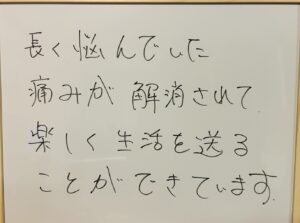 長く悩んでいた
痛みが解消されて
楽しく生活を送る
ことができています.